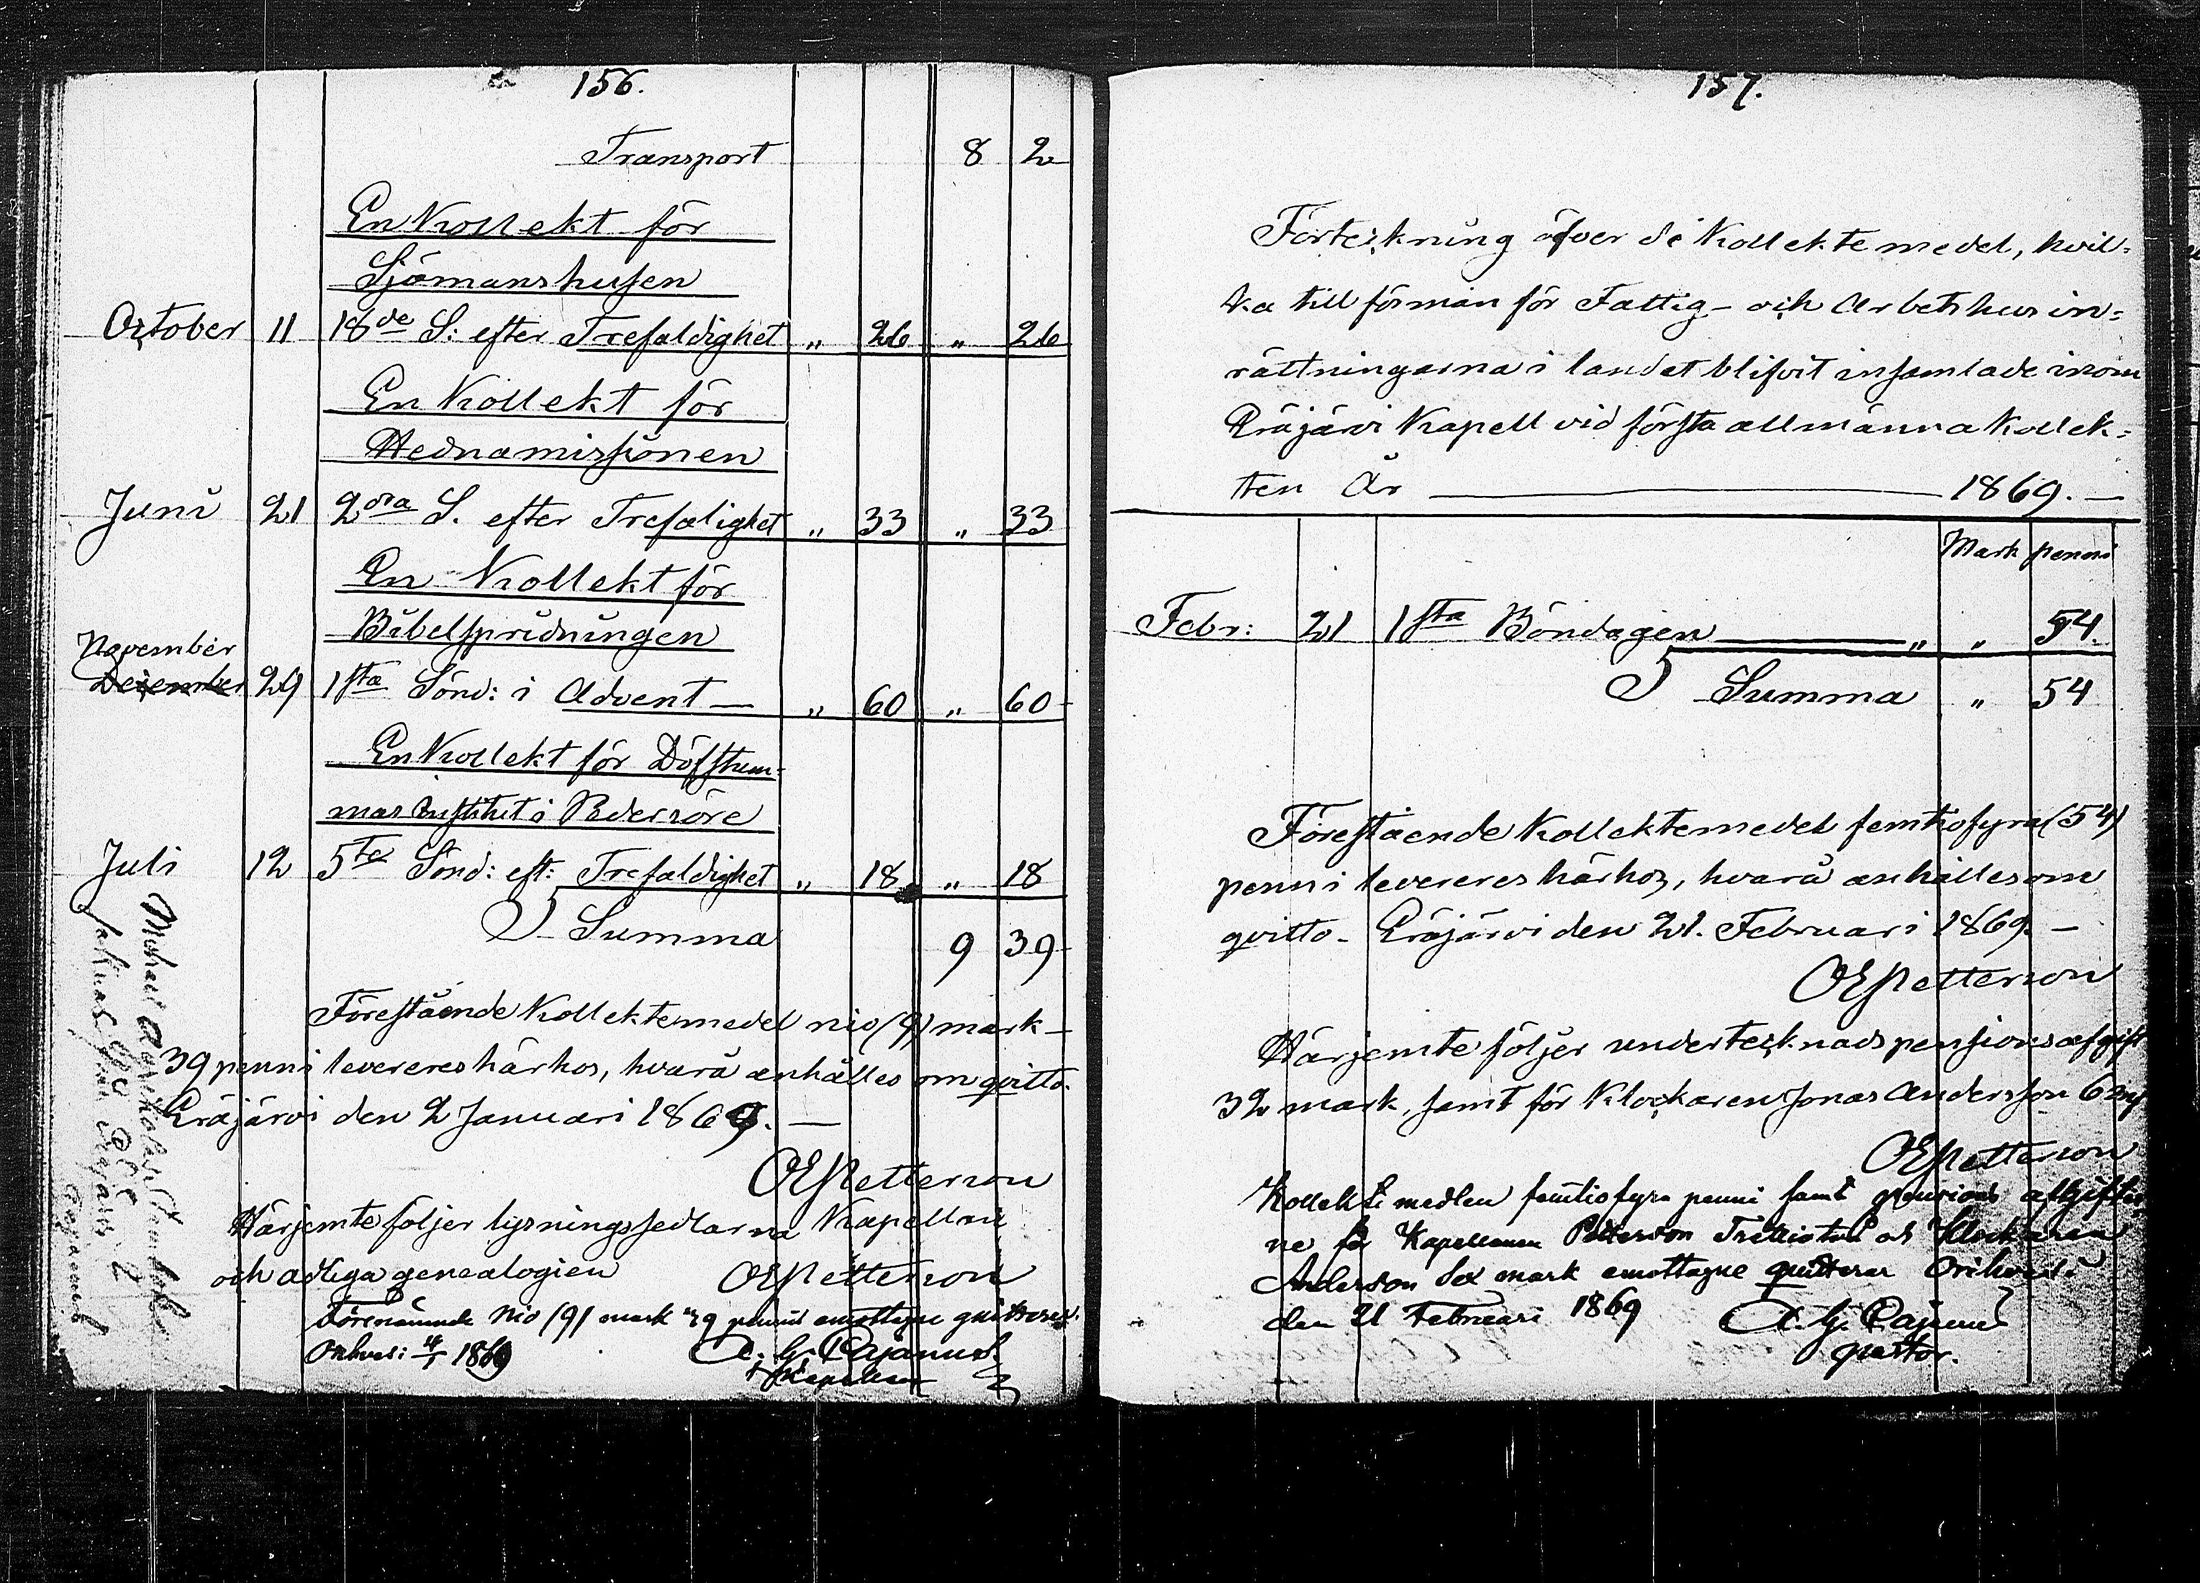 156.
Transport 8 2
En Kollekt för
Sjömanshusen
October 11 18de S: efter Trefaldighet " 26 " 26
En Kollekt för
Hednamissionen
Juni 21 2dra S. efter Trefalighet " 33 " 33
En Kollekt för
Bibelspridningen
November
December 29 1sta Sönd: i Advent — " 60 " 60
En Kollekt för Döfstum-
mas Institut i Pedersöre
Juli 12 5te Sönd: eft: Trefaldighet " 18 " 18
Summa 9 39
Förestående Kollektemedel nio (9) mark
39 penni levereres härhos, hvarå anhålles om qvitto.
Eräjärvi den 2 Januari 1869. —
OEPetterson
Härjemte följer lysningssedlarna Kapellni
och adliga genealogien OEPetterson
Förenämnde Nio (9) mark 39 penni emottagne quitteras.
Orihvesi 1869 A. G. Cajanus
Michael
157.
Förteckning öfver de Kollektemedel, hvil=
ka till förmån för Fattig- och Arbetshusin=
rättningarna i landet blifvit insamlade inom
Eräjärvi Kapell vid första allmänna Kollek=
ten År — 1869. —
Mark penni
Febr: 21 1sta Böndagen — " " 54.
Summa " 54
Förestående Kollektemedel femtiofyra (54)
penni levereres härhos, hvarå anhålles om
qvitto. Eräjärvi den 21. Februari 1869. —
OEPetterson
Härjemte följer undertecknads pensionsafgift
32 mark, samt för Klockaren Jonas Andersson 6 m
OEPetterson
Kollekte medlen femtiofyra penni samt pensions afgifter
ne för Kapellanen Petterson Trettiotvå och Klockaren
Anderson Sex mark emottagne quitteras Orihvesi
den 21 Februari 1869 A. G. Cajanus
pastor.